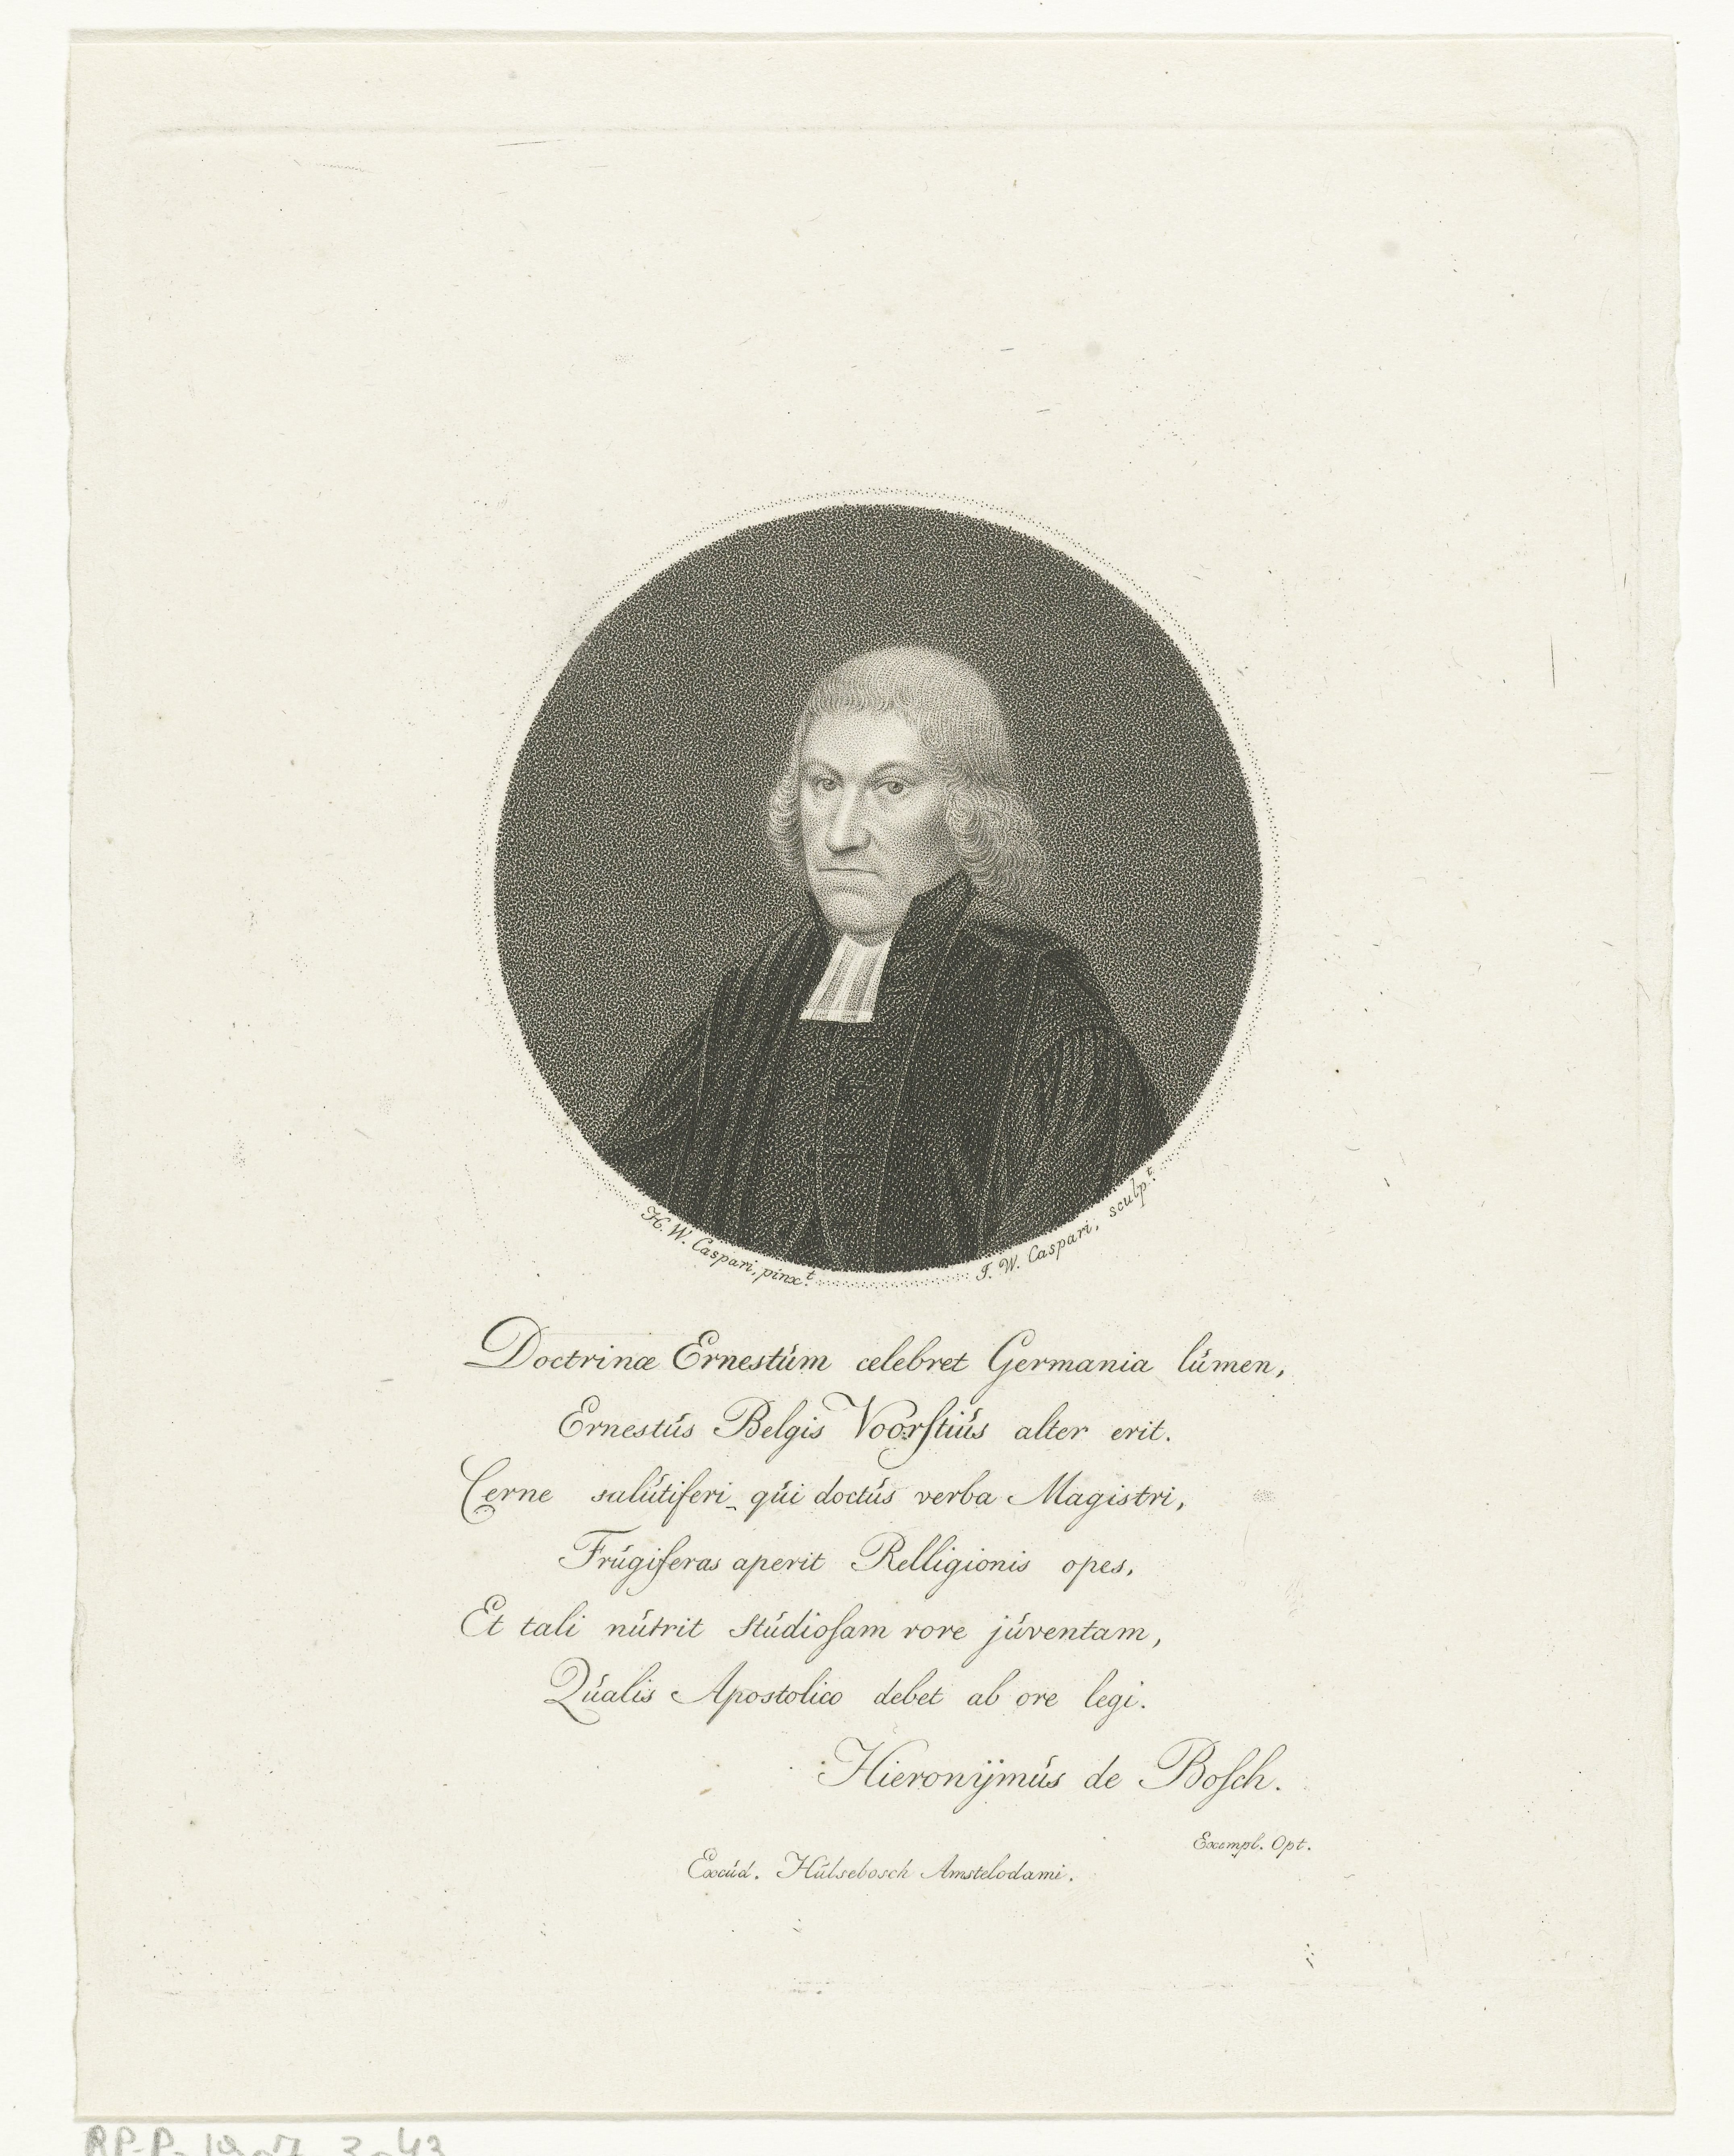 H. W. Caspari, pinx.t
J. W. Caspari, sculp.t
Doctrinæ Ernestúm celebret Germania lúmen,
Ernestús Belgis Voorſtiús alter erit.
Cerne salútiferi qúi doctús verba Magistri,
Frúgiferas aperit Relligionis opes,
Et tali nútrit stúdioſam rore júventam,
Qúalis Apostolico debet ab ore legi.
Hieronÿmús de Boſch.
Exempl. Opt.
Excúd. Húlsebosch Amstelodami.